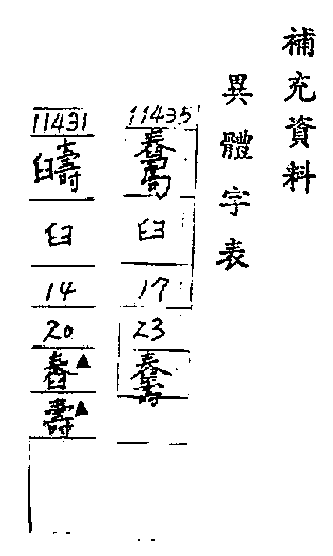 補充資料
異體字表
11435
臼
17
23
11431
臼
14
20
▲
▲